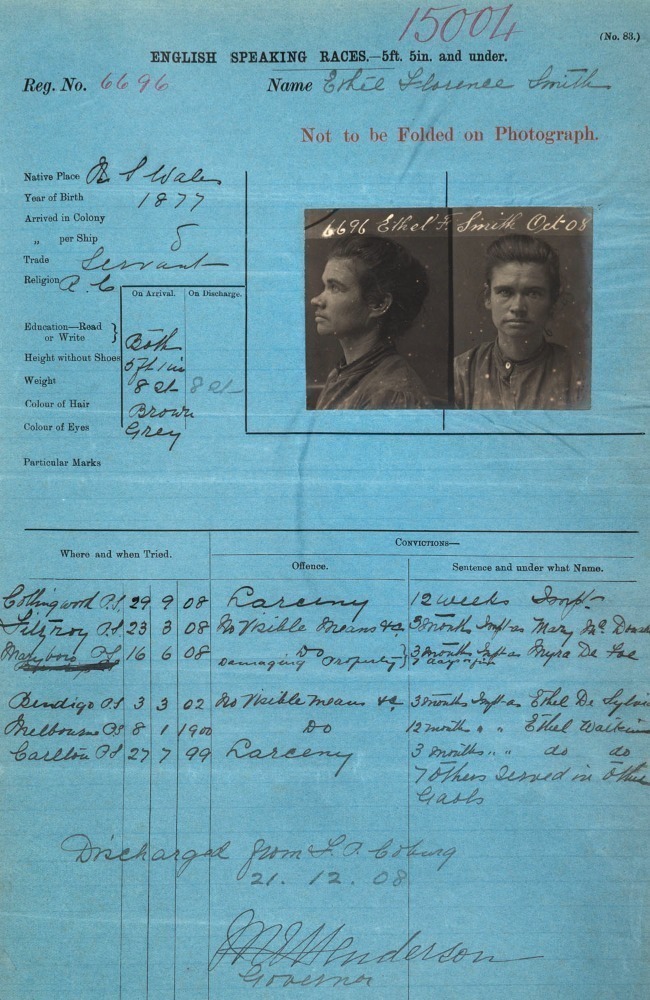 15004
(No. 83.)
ENGLISH SPEAKING RACES.—5ft. 5in. and under.
Reg. No. 6696 Name Ethel Florence Smith
Not to be Folded on Photograph.
Native Place N S Wales
Year of Birth 1877
Arrived in Colony
„ per Ship
Trade Servant
Religion R. C
On Arrival. On Discharge.
Education—Read or Write } Both
Height without Shoes 5ft 1in
Weight 8 st 8 st
Colour of Hair Brown
Colour of Eyes Grey
Particular Marks
6696 Ethel F. Smith Oct 08
CONVICTIONS—
Where and when Tried. Offence. Sentence and under what Name.
Collingwood P.S. 29 9 08 Larceny 12 weeks Impt
Fitzroy P.S 23 3 08 No Visible Means &c. 3 months Impt as Mary Mc
Maryboro P.S 16 6 08 Do } 3 months Impt as Myra De
Damaging Property 7 days
Bendigo P.S 3 3 02 No Visible means &c 3 months Impt as Ethel De
Melbourne P.S 8 1 1900 Do 12 months " " Ethel
Carlton P.S 27 7 99 Larceny 3 months " " do do
7 Others served in Other
Gaols
Discharged from F. P. Coburg
21. 12. 08
Henderson
Governor